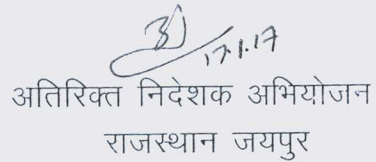 17.1.17
अतिरिक्त निदेशक अभियोजन
राजस्थान जयपुर